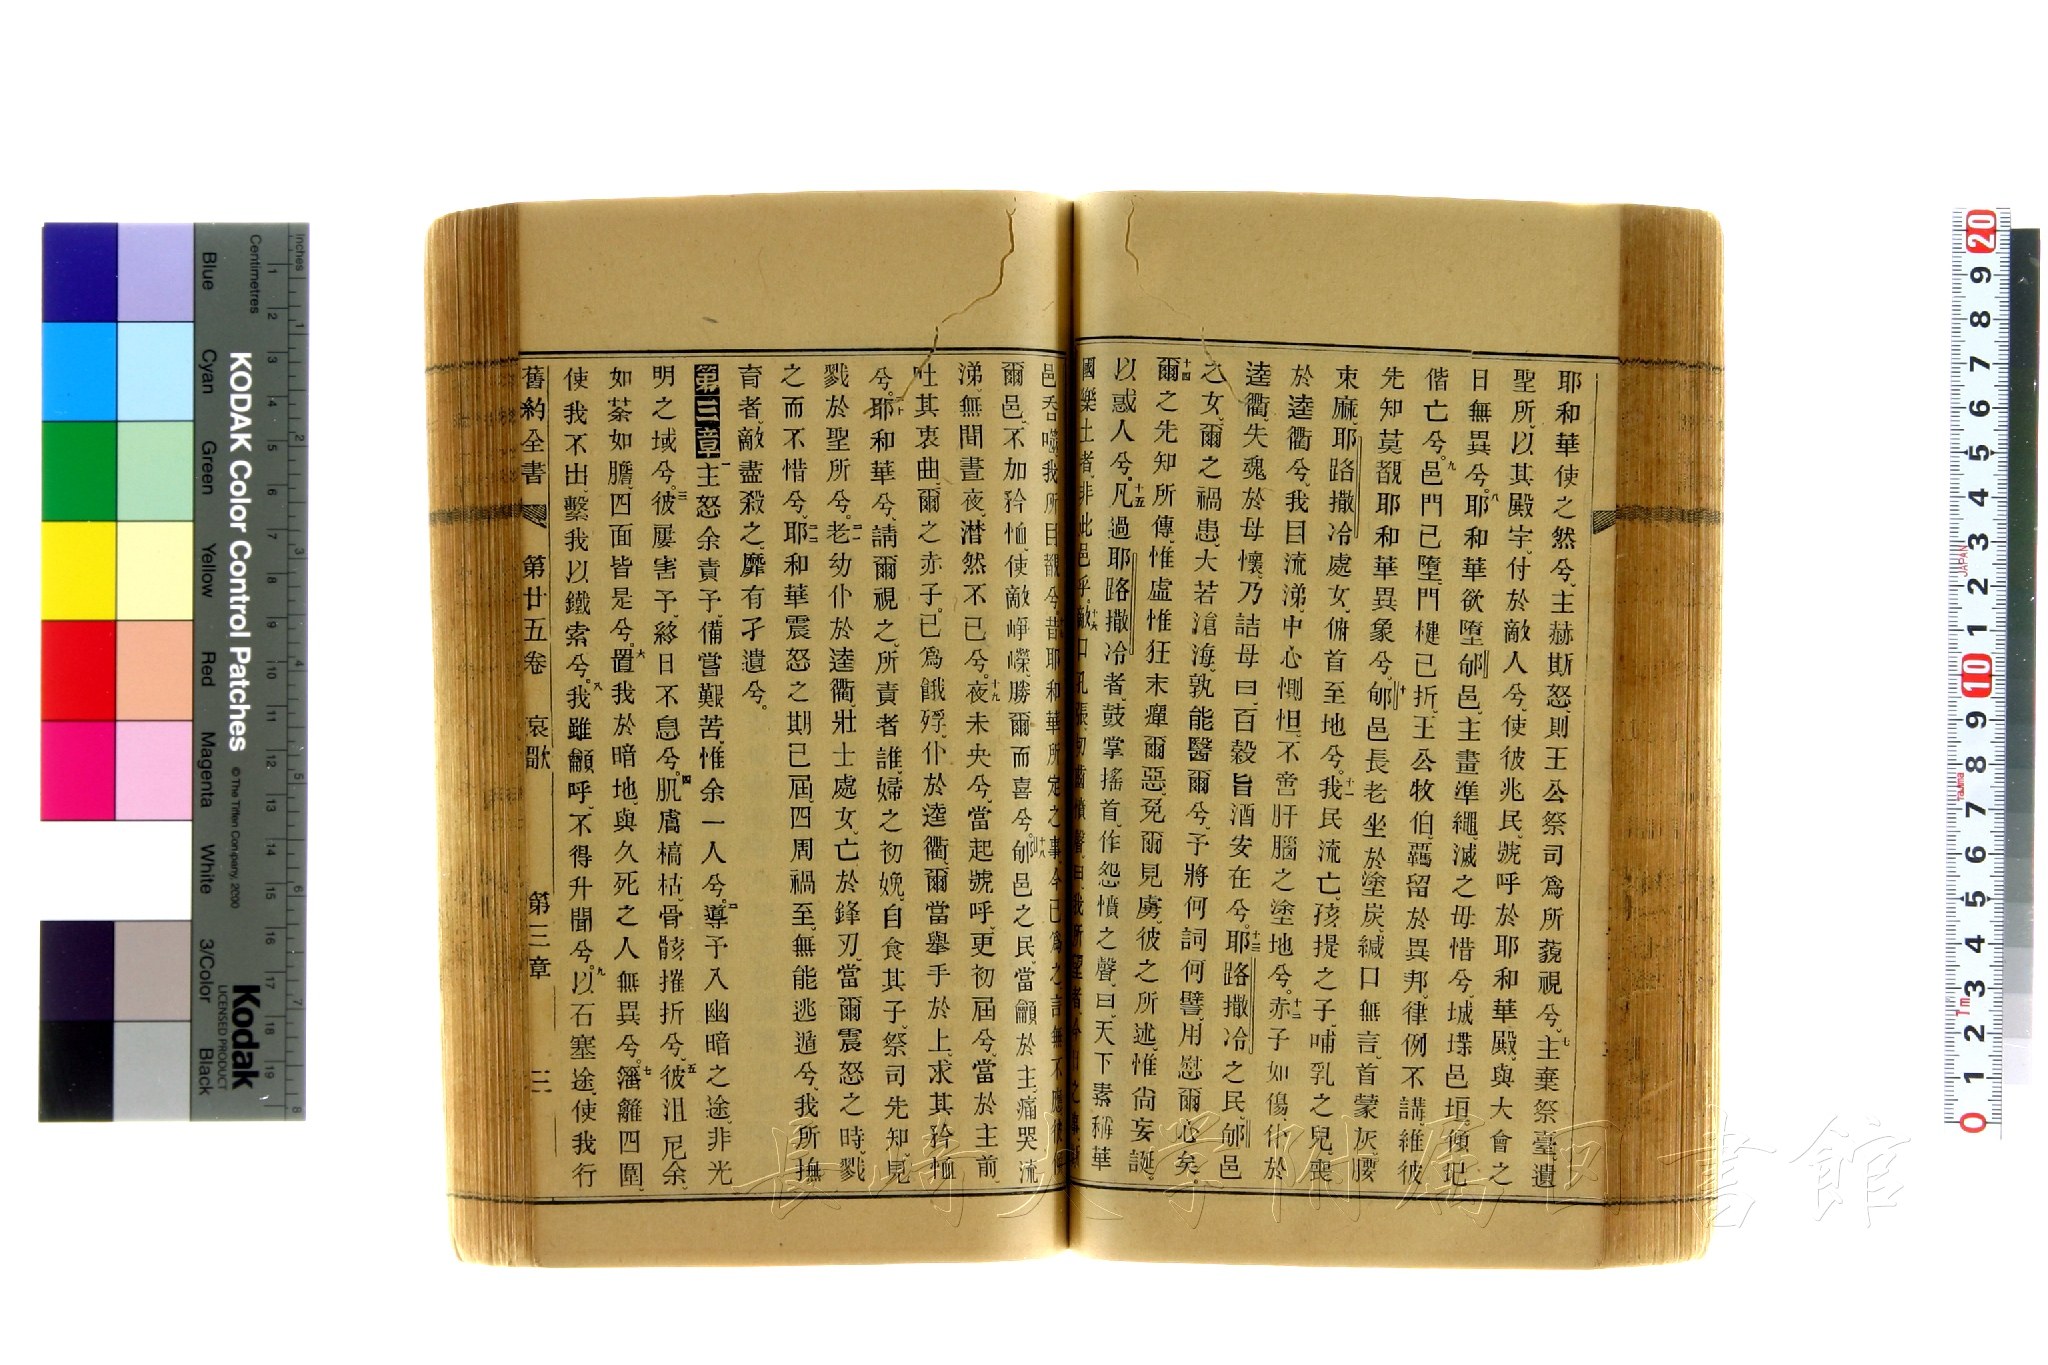 耶和華使之然兮、主赫斯怒、則王公祭司爲所藐視兮、七主棄祭臺、遺
聖所、以其殿宇、付於敵人兮、使彼兆民、號呼於耶和華殿、與大會之
日無異兮、八耶和華欲墮郇邑、主畫準繩、滅之毋惜兮、城堞邑垣、傾圮
偕亡兮。九邑門已墮、門楗已折、王公牧伯、羈留於異邦、律例不講、維彼
先知、莫覩耶和華異象兮。十郇邑長老、坐於塗炭、緘口無言、首蒙灰、腰
束麻、耶路撒冷處女、俯首至地兮。十一我民流亡、孩提之子、哺乳之兒、喪
於逵衢兮、我目流涕、中心惻怛、不啻肝腦之塗地兮。十二赤子如傷、仆於
逵衢、失魂於母懷、乃詰母曰、百穀旨酒安在兮。十三耶路撒冷之民、郇邑
之女、爾之禍患、大若滄海、孰能醫爾兮、予將何詞何譬、用慰爾心矣。
十四爾之先知所傳、惟虛惟狂、未癉爾惡、免爾見虜、彼之所述、惟尙妄誕、
以惑人兮。十五凡過耶路撒冷者、鼓掌搖首、作怨憤之聲、曰、天下素稱華
國樂土者、非此邑乎。十六敵口孔張、切齒憤聲、曰、我所望者、今日之事、
邑吞噬、我所目覩兮。昔耶和華所定之事、今已爲之、言無不應、使
爾邑、不加矜恤、使敵崢嶸、勝爾而喜兮。十八郇邑之民、當籲於主、痛哭流
涕、無間晝夜、潸然不已兮。十九夜未央兮、當起號呼、更初屆兮、當於主前、
吐其衷曲、爾之赤子、已爲餓殍、仆於逵衢、爾當舉手於上、求其矜恤
兮。二十耶和華兮、請爾視之、所責者誰、婦之初娩、自食其子、祭司先知、見
戮於聖所兮。二一老幼仆於逵衢、壯士處女、亡於鋒刃、當爾震怒之時、戮
之而不惜兮、二二耶和華震怒之期已屆、四周禍至、無能逃遁兮、我所撫
育者、敵盡殺之、靡有孑遺兮。
第三章一主怒余責予、備嘗艱苦、惟余一人兮。二導予入幽暗之途、非光
明之域兮。三彼屢害予、終日不息兮。四肌膚槁枯、骨骸摧折兮、五彼沮尼余、
如荼如膽、四面皆是兮。六置我於暗地、與久死之人無異兮。七籓籬四圍、
使我不出、繫我以鐵索兮。八我雖籲呼、不得升聞兮。九以石塞途、使我行
舊約全書　第廿五卷　哀歌　第三章　三
KODAK Color Control Patches
© The Tiffen Company, 2000
Kodak
LICENSED PRODUCT
Inches
Centimetres
Blue
Cyan
Green
Yellow
Red
Magenta
White
3/Color
Black
JAPAN
長崎大学附属図書館